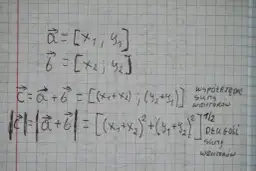 a⃗ = [x₁, y₁]
b⃗ = [x₂; y₂]
c⃗ = a⃗ + b⃗ = [(x₁+x₂) ; (y₁+y₂)] współrzędne sumy wektorów
|c⃗| = |a⃗ + b⃗| = [(x₁+x₂)² + (y₁+y₂)²]^1/2 długość sumy wektorów